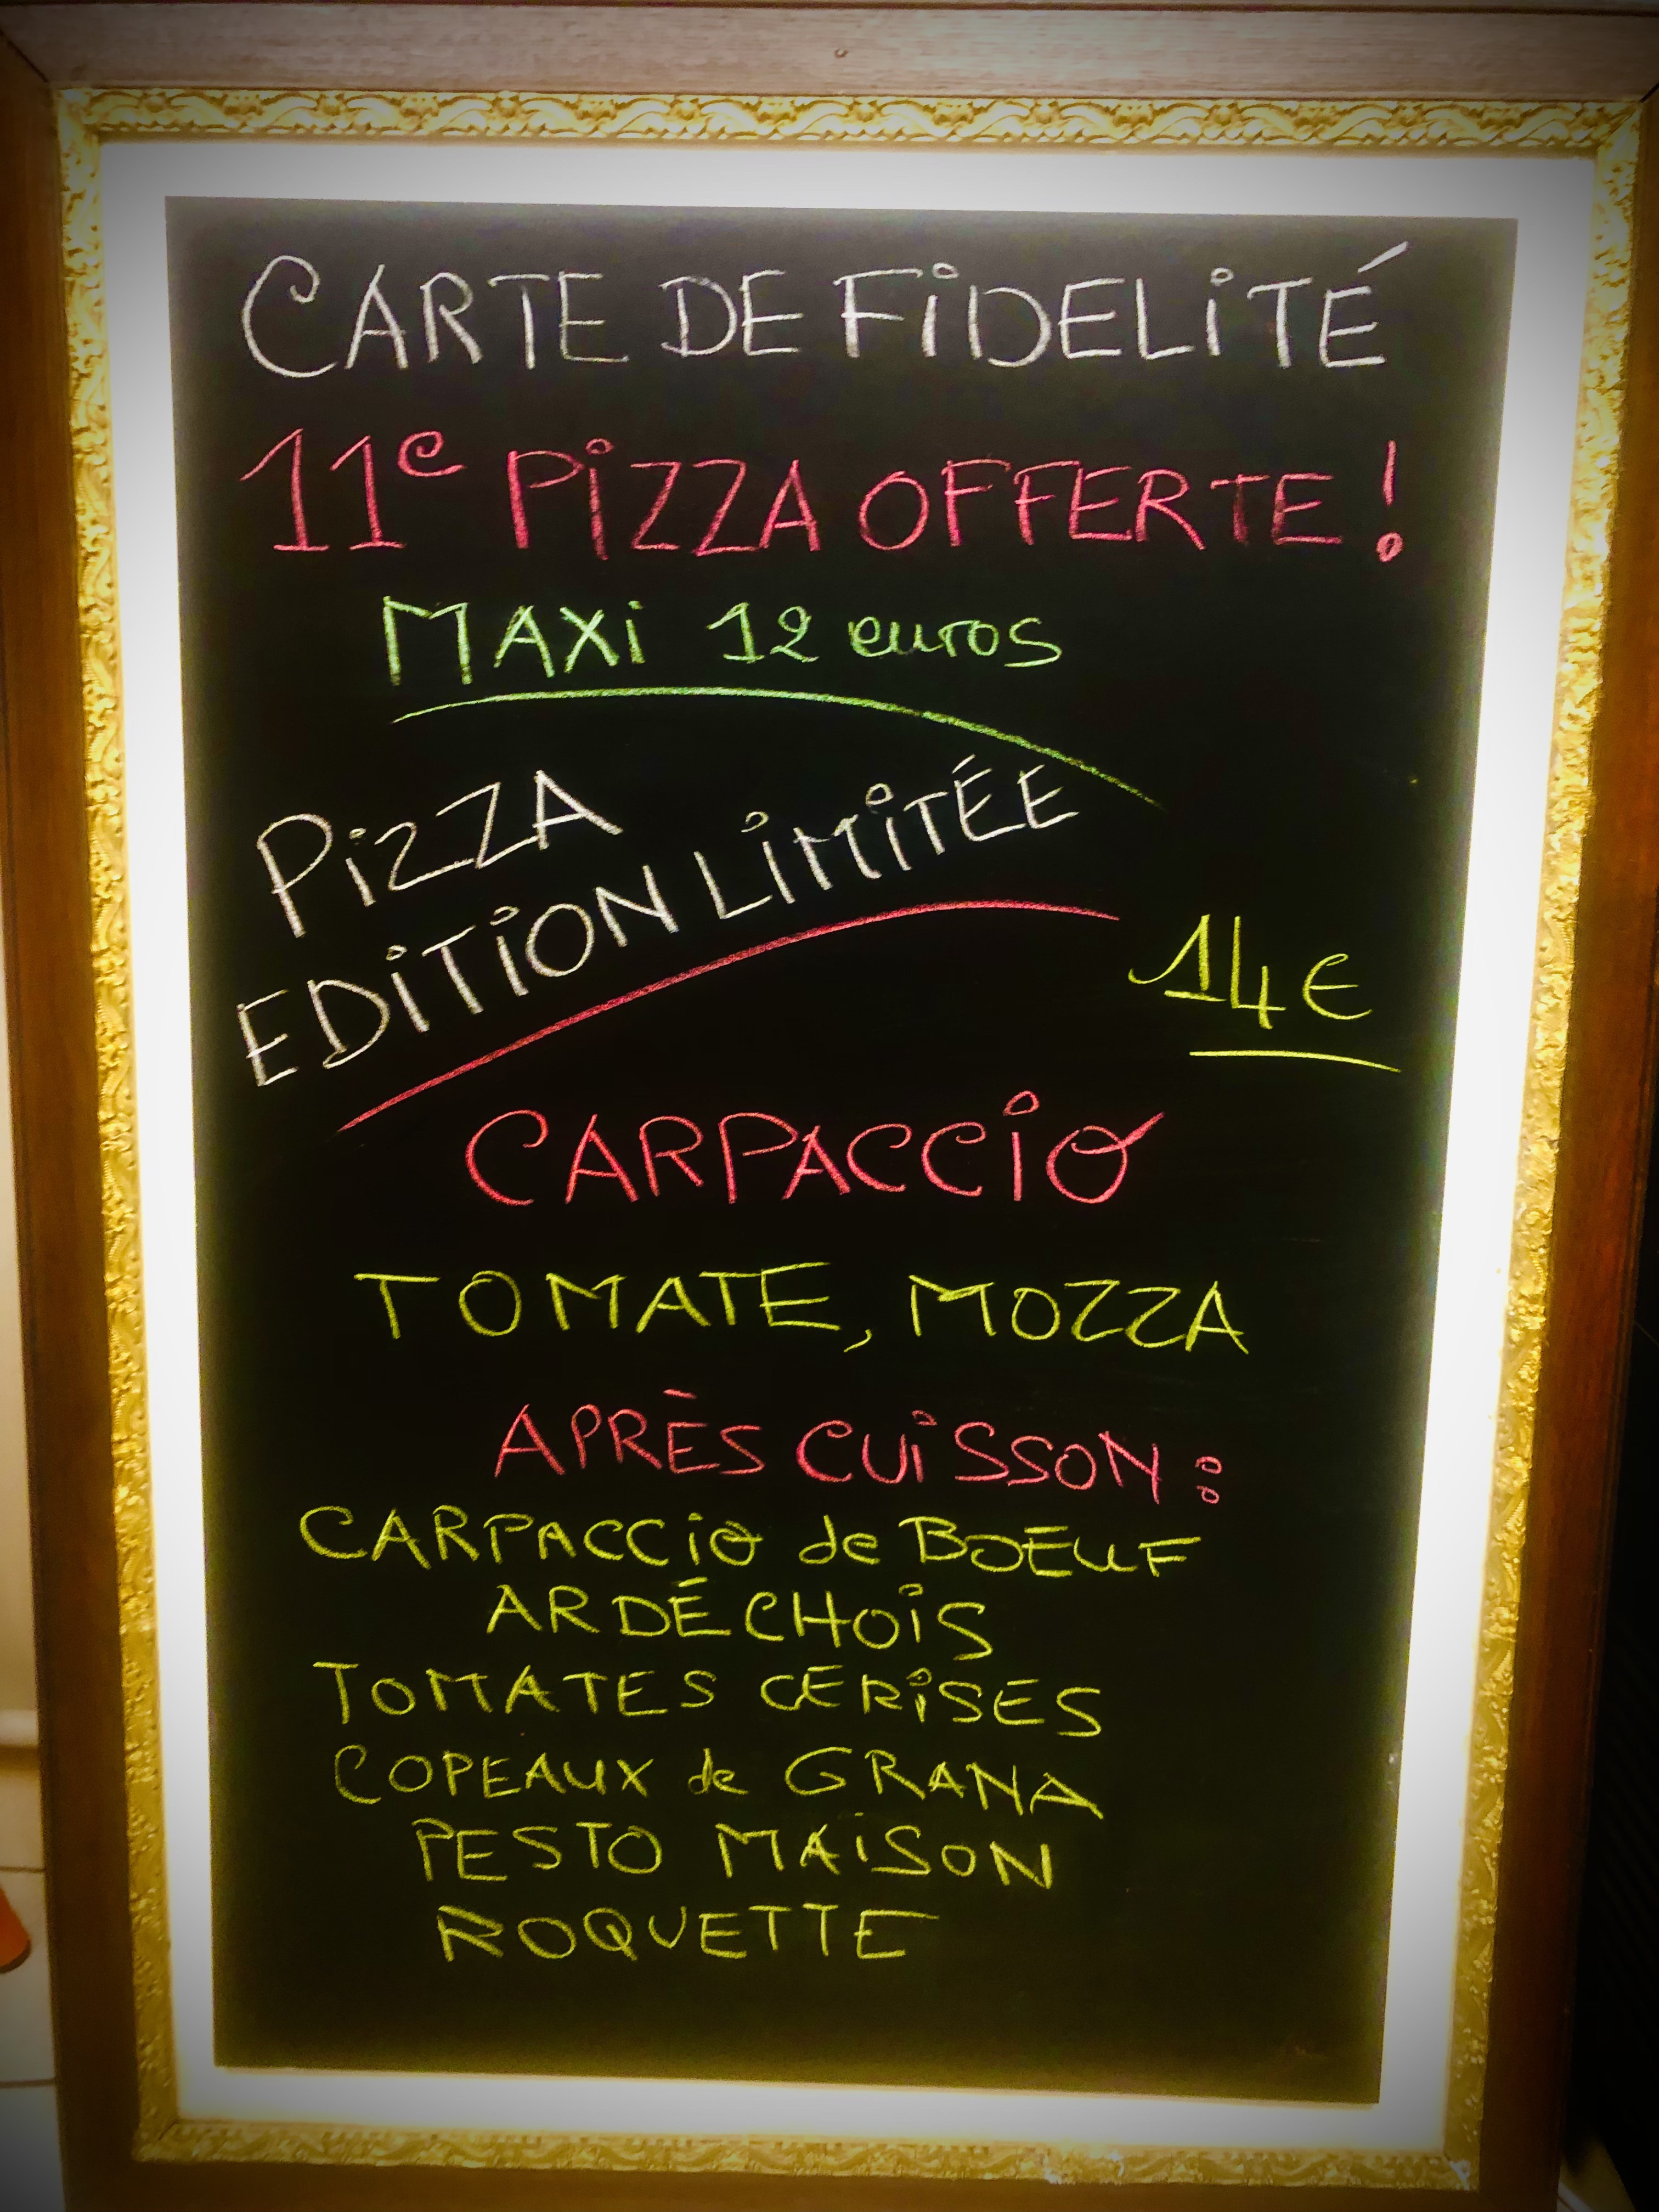 CARTE DE FiDELiTÉ
11e PiZZA OFFERTE !
MAXi 12 euros
PiZZA
EDiTiON LiMiTÉE
14€
CARPACCiO
TOMATE, MOZZA
APRÈS CUiSSON :
CARPACCiO de BOEUF
ARDÉCHOiS
TOMATES CERiSES
COPEAUX de GRANA
PESTO MAiSON
ROQUETTE